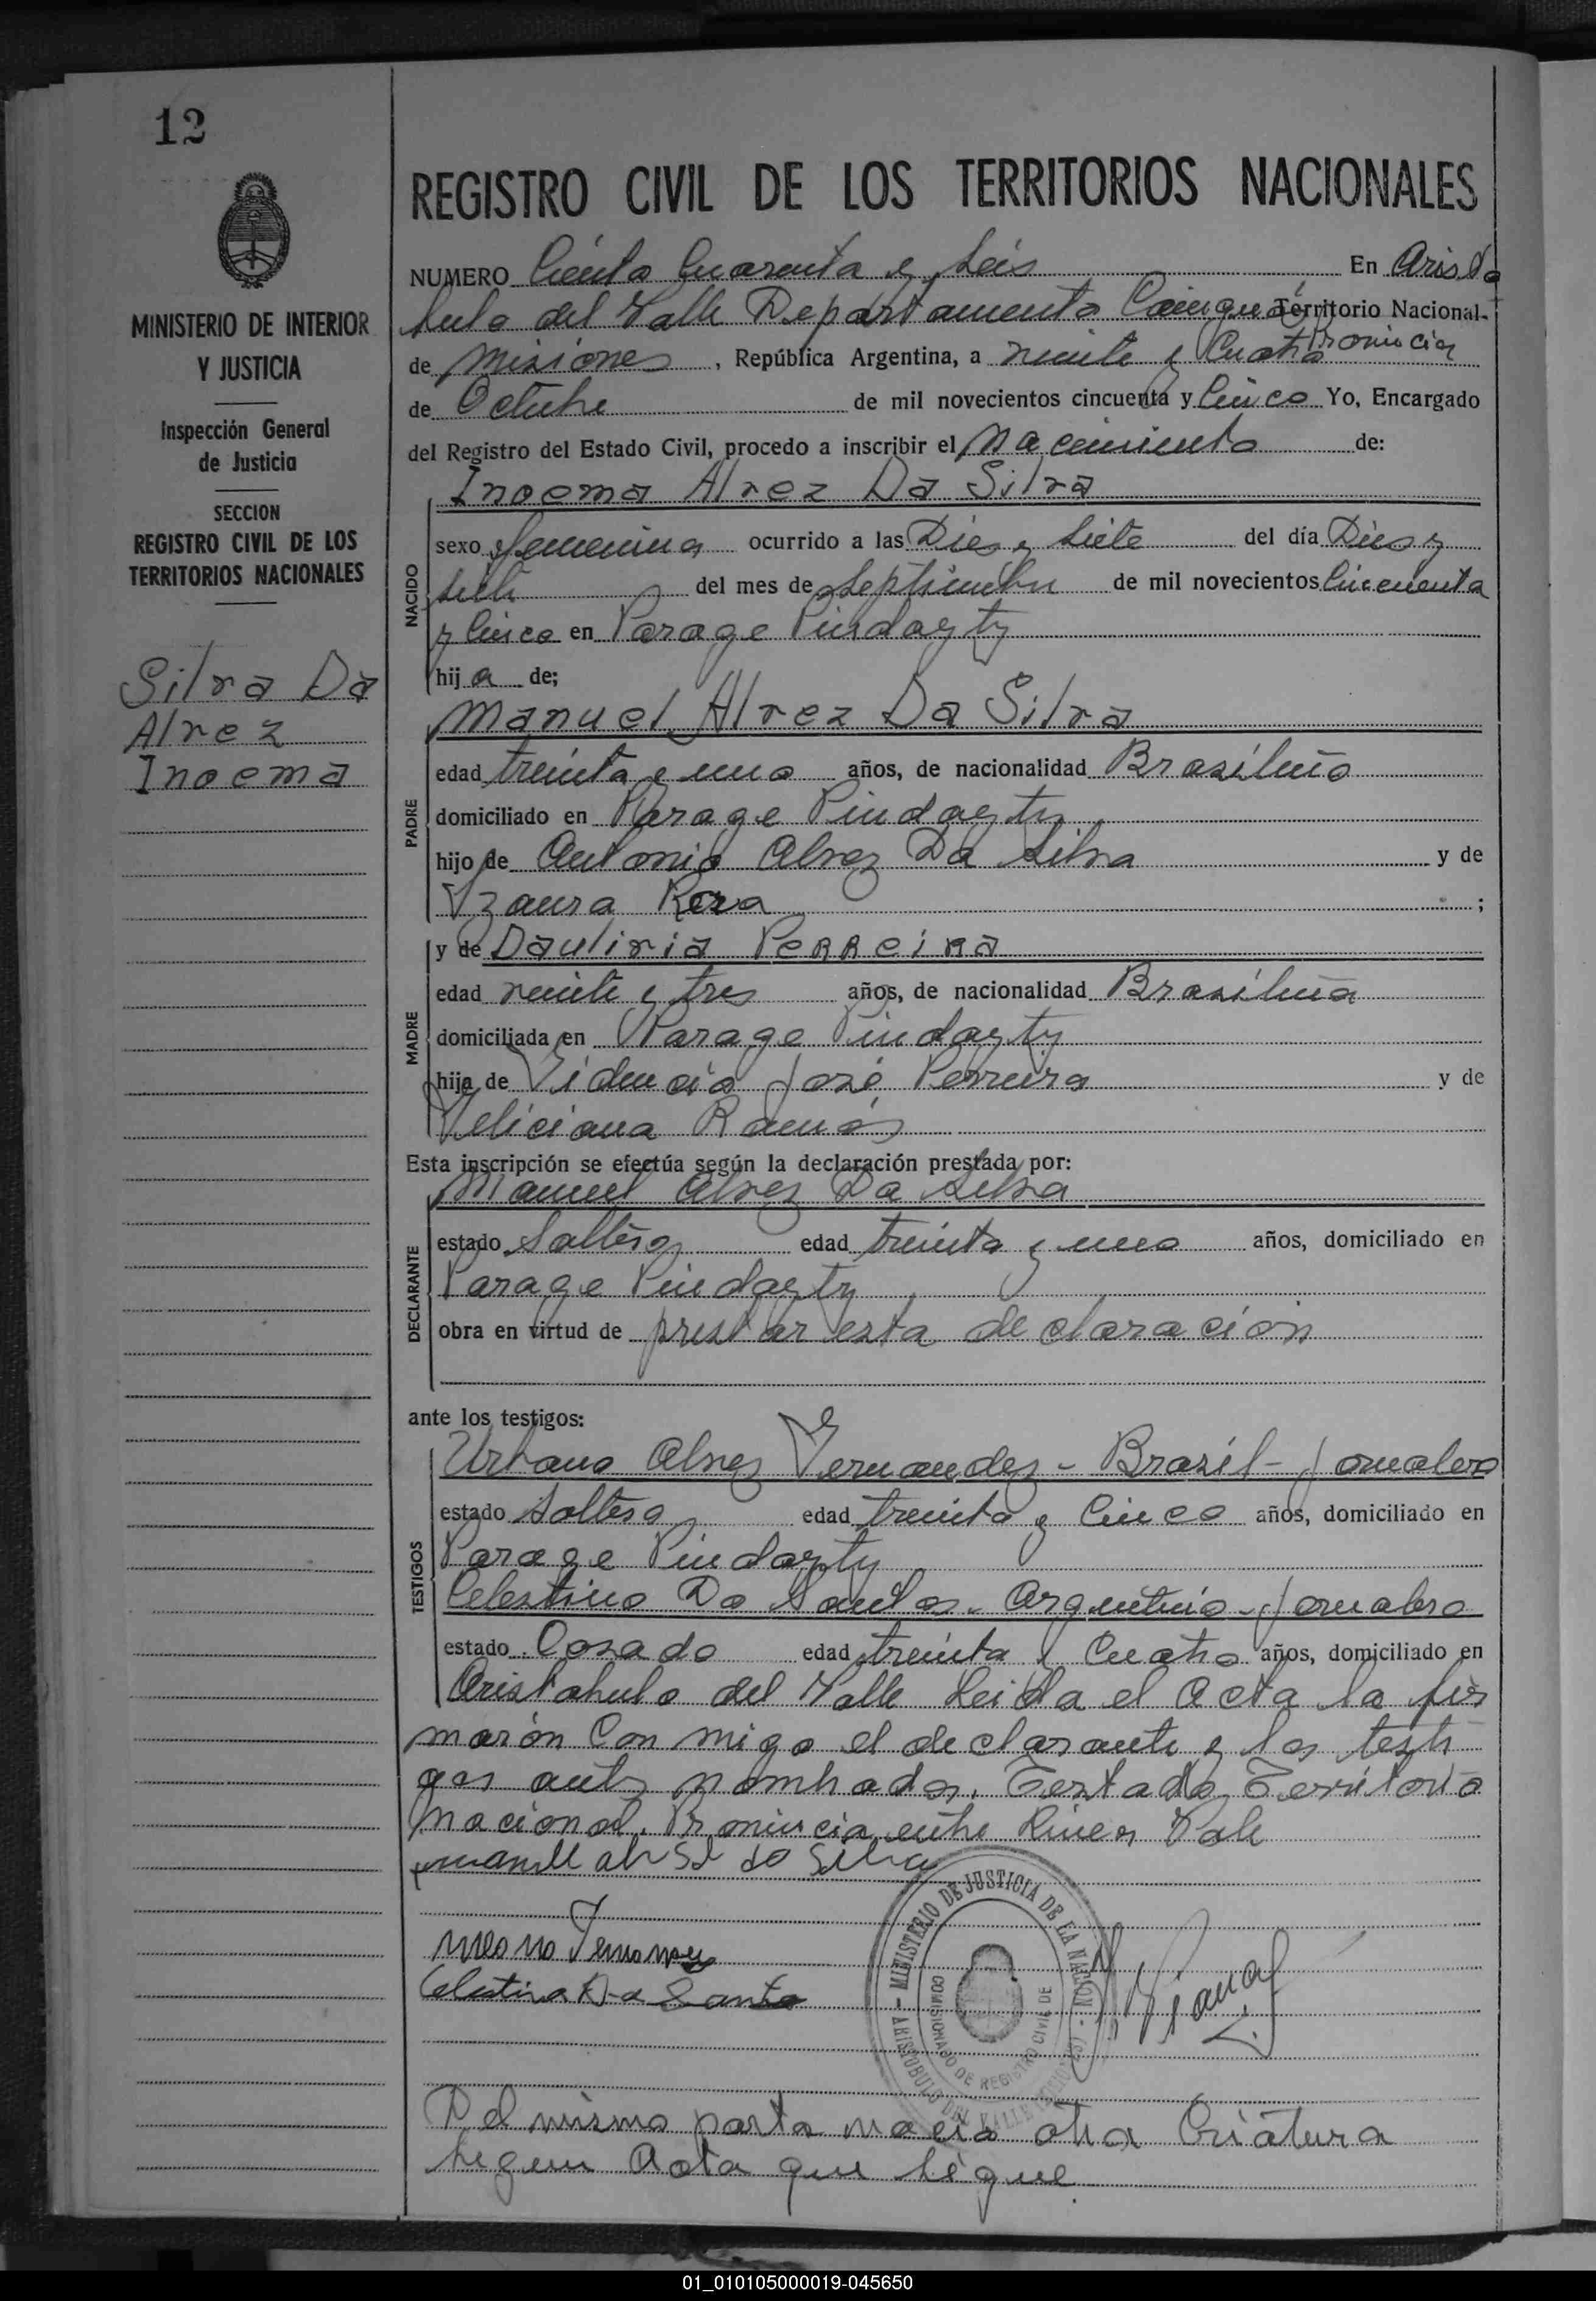 12
REGISTRO CIVIL DE LOS TERRITORIOS NACIONALES
MINISTERIO DE INTERIOR
Y JUSTICIA
Inspección General
de Justicia
SECCION
REGISTRO CIVIL DE LOS
TERRITORIOS NACIONALES
Silva Da
Alvez
Inoema
NUMERO Ciento Cuarenta y Seis En Aristo
bulo del Valle Departamento Cainguás Territorio Nacional
Provincia
de Misiones, República Argentina, a veinte y Cuatro
de Octubre de mil novecientos cincuenta y Cinco Yo, Encargado
del Registro del Estado Civil, procedo a inscribir el Nacimiento de:
Inoema Alvez Da Silva
NACIDO
sexo femenina ocurrido a las Dies y Siete del día Dies y
siete del mes de Septiembre de mil novecientos Cincuenta
y Cinco en Parage Pindayty
hija de;
Manuel Alvez Da Silva
PADRE
edad treinta y uno años, de nacionalidad Brasileño
domiciliado en Parage Pindayty
hijo de Antonio Alvez Da Silva y de
Izaura Roza ;
y de Dauliria Perreira
MADRE
edad veinte y tres años, de nacionalidad Brasileña
domiciliada en Parage Pindayty
hija de Fidencio José Perreira y de
Feliciana Ramós
Esta inscripción se efectúa según la declaración prestada por:
Manuel Alvez Da Silva
DECLARANTE
estado Soltero edad treinta y uno años, domiciliado en
Parage Pindayty
obra en virtud de prestar esta declaración
ante los testigos:
TESTIGOS
Urbano Alvez Fernandez - Brazil - Jornalero
estado Soltero edad treinta y Cinco años, domiciliado en
Parage Pindayty
Celestino Do Santos - Argentino - Jornalero
estado Casado edad treinta y Cuatro años, domiciliado en
Aristobulo del Valle Leida el Acta la fir
marón Con migo el declarante y los testi
gos antes nombrados. Testado Territorio
Nacional. Provincia entre Lineas Vale
da Silva
Celestino Da Santo
MINISTERIO DE JUSTICIA DE LA NACION
ARISTOBULO DEL VALLE (MISIONES)
COMISIONADO DE REGISTRO CIVIL DE
Del mismo parto nacio otra Criatura
Segun Acta que Sigue
01_010105000019-045650